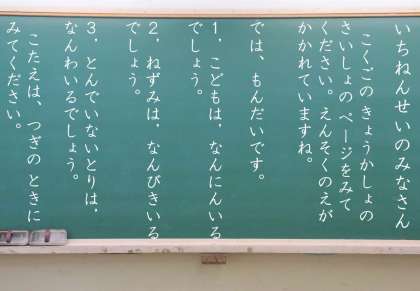 いちねんせいのみなさん
こくごの きょうかしょの
さいしょの ページをみて
ください。えんそくのえが
かかれていますね。
では、もんだいです。
1．こどもは、なんにんいる
でしょう。
2．ねずみは、なんびきいる
でしょう。
3．とんでいないとりは、
なんわいるでしょう。
こたえは、つぎの ときに
みてください。